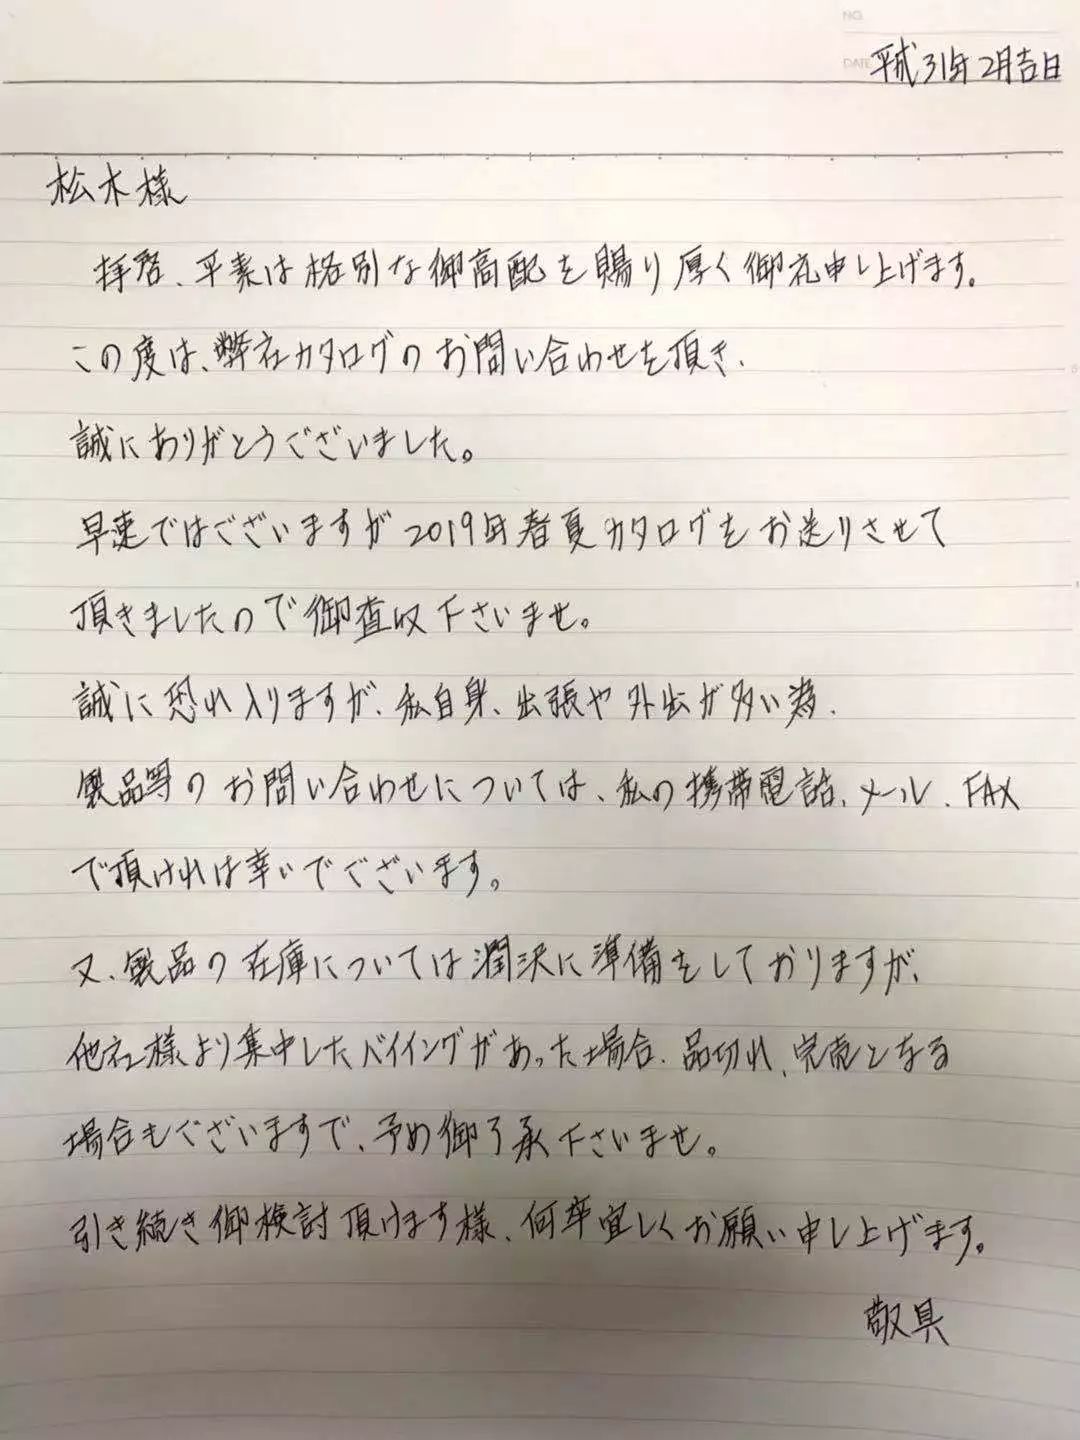 NO.
DATE 平成31年2月吉日
松木様
拝啓、平素は格別な御高配を賜り厚く御礼申し上げます。
この度は、弊社カタログのお問い合わせを頂き、
誠にありがとうございました。
早速ではございますが2019年春夏カタログをお送りさせて
頂きましたので御査収下さいませ。
誠に恐れ入りますが、私自身、出張や外出が多い為、
製品等のお問い合わせについては、私の携帯電話、メール、FAX
で頂ければ幸いでございます。
又、製品の在庫については潤沢に準備をしておりますが、
他社様より集中したバイイングがあった場合、品切れ、完売となる
場合もございますで、予め御了承下さいませ。
引き続き御検討頂けます様、何卒宜しくお願い申し上げます。
敬具